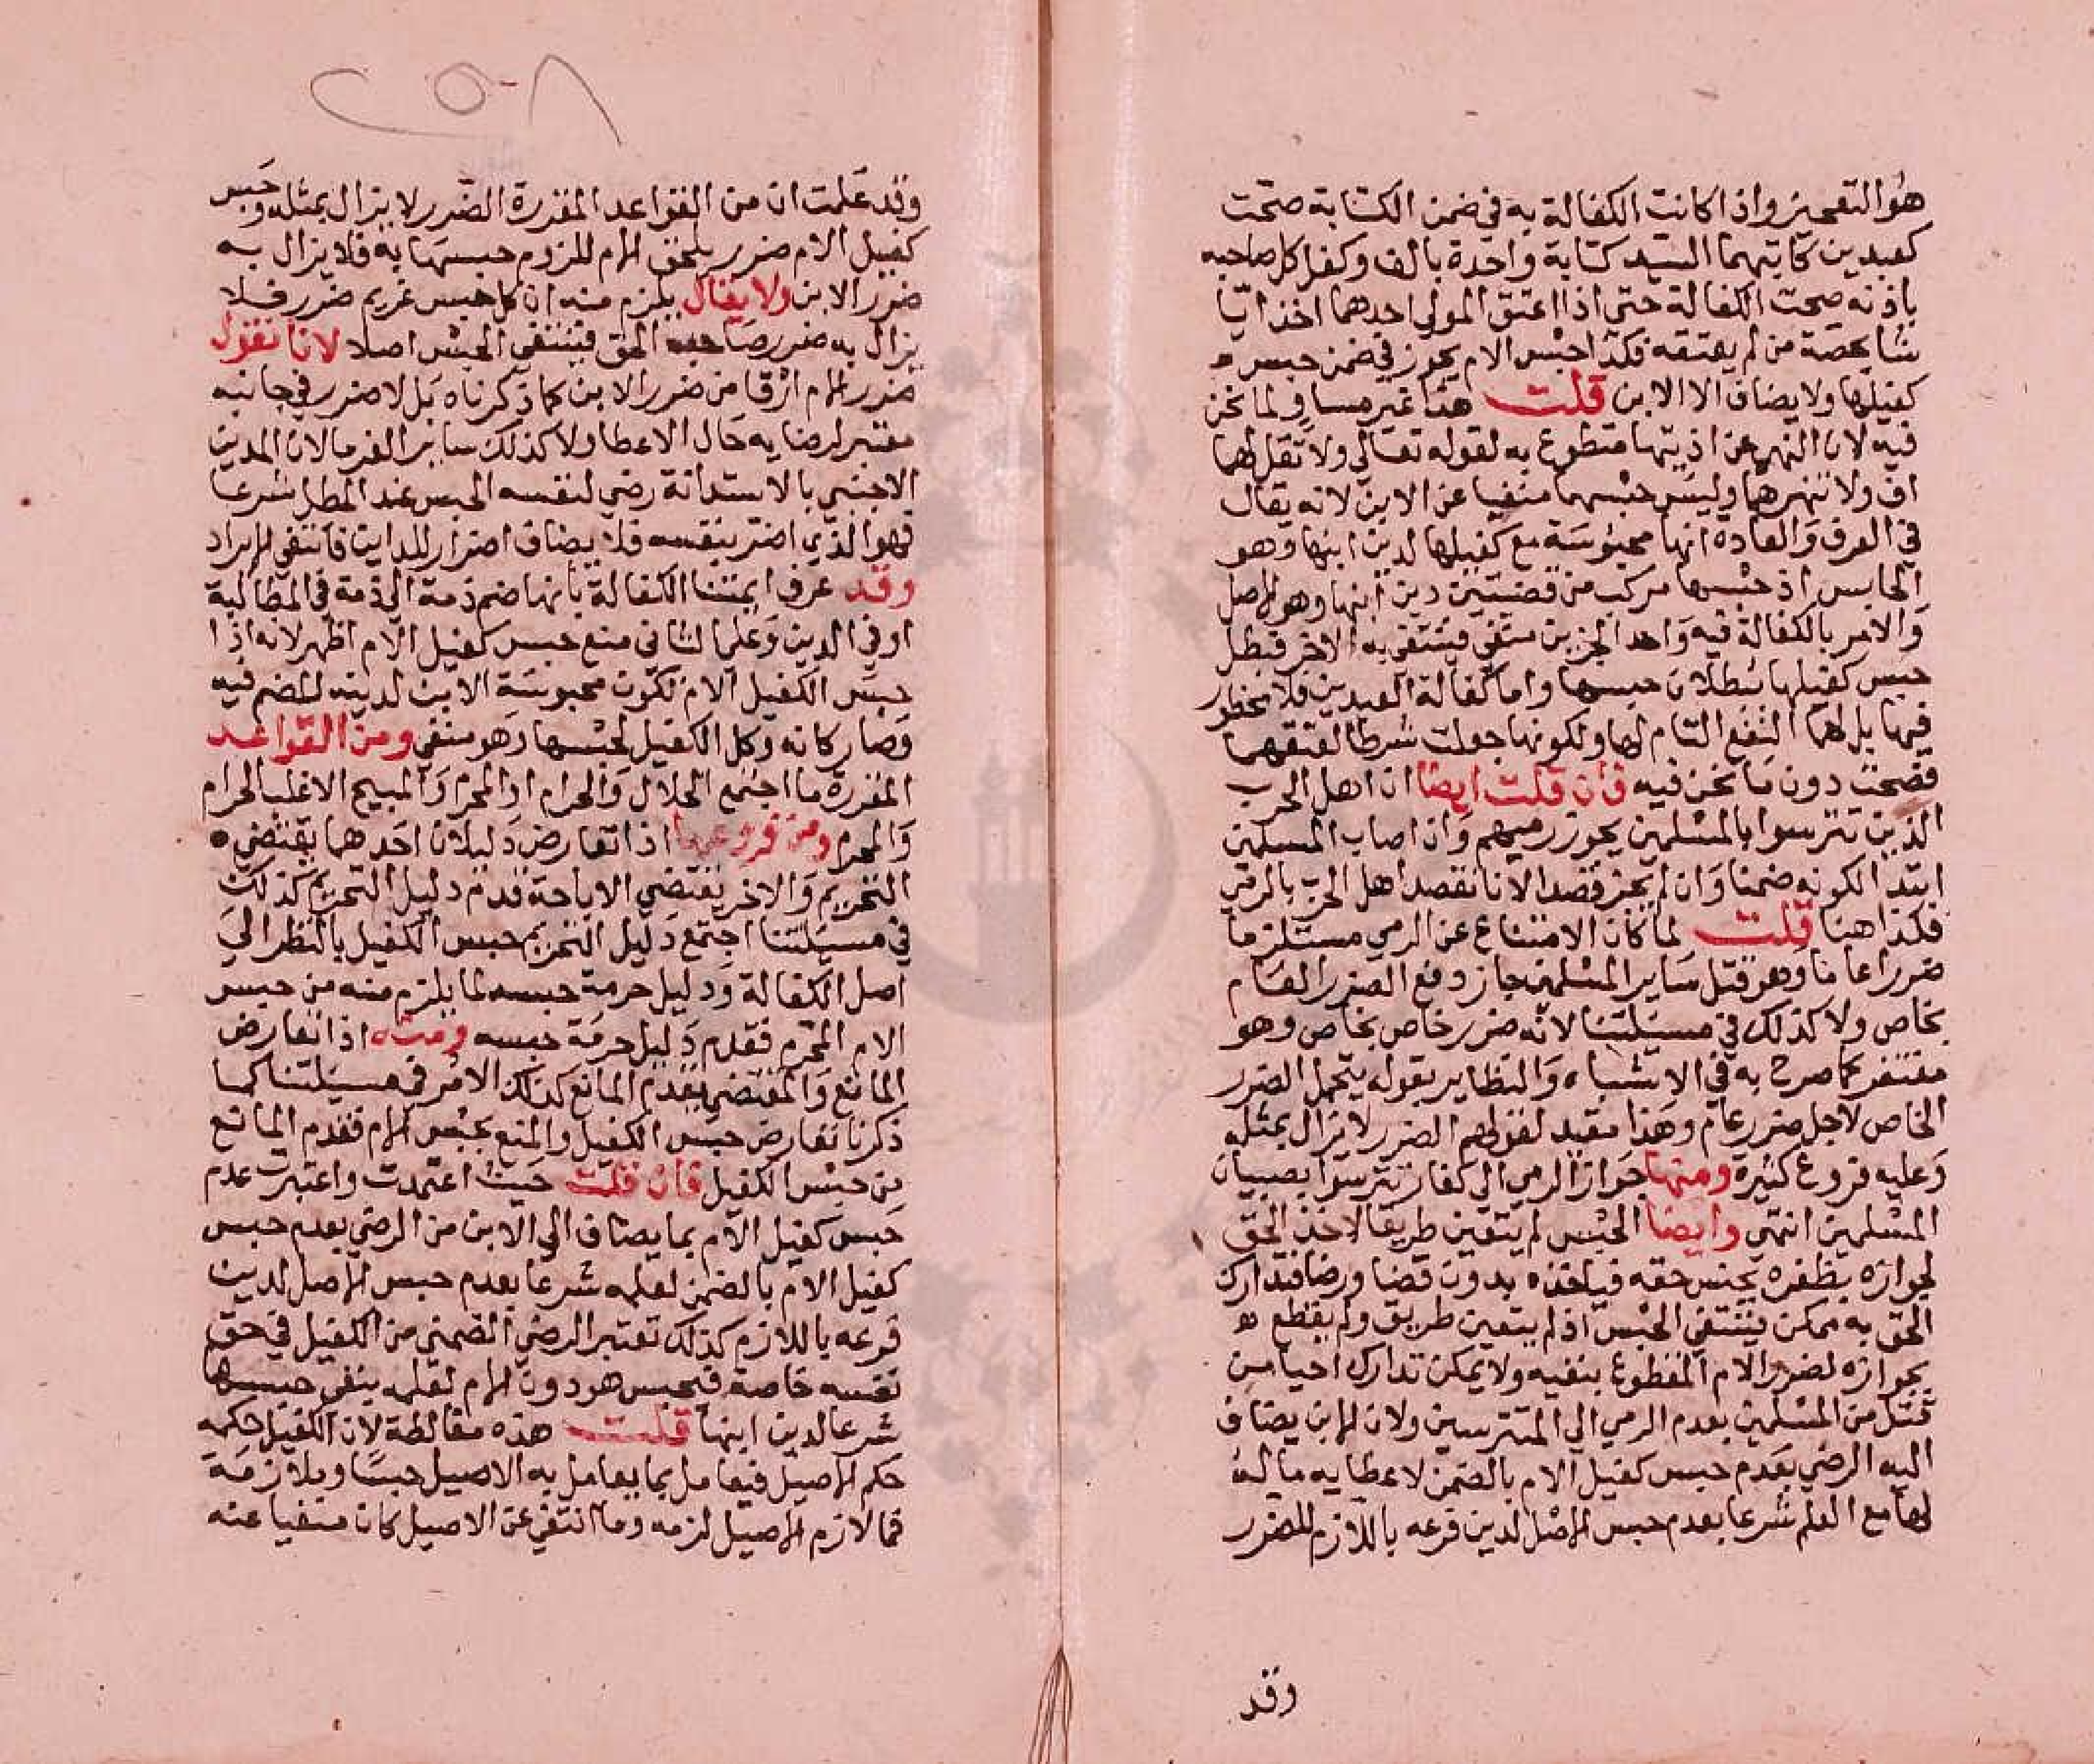 هو التعجيز واذا كانت الكفالة به في ضمن الكتابة صحت
كعبدين كاتبهما السيد كتابة واحدة بالف وكفل كل صاحبه
باذنه صحت الكفالة حتى اذا اعتق المولى احدهما اخذ ايا
شا بحصة من لم يعتقه فكذا حبس الام يجوز في ضمن حبس
كفيلها ولا يضاف الا الابن قلت هذا غير مساو لما نحن
فيه لان النهي عن اذيتها مقطوع به لقوله تعالى ولا تقل لهما
اف ولا تنهرهما وليس حبسها منفيا عن الابن لانه يقال
في العرف والعادة انها محبوسة مع كفيلها لدين ابنها وهو
الحابس اذ حبسها مركب من قضيتين دين ابنها وهو الاصل
والامر بالكفالة فيه واحد الجزين منتفي فينتفي به الاخر فبطل
حبس كفيلها ببطلان حبسها واما كفالة العبدين فلا محظور
فيها بل لهما النفع التام لها ولكونها جعلت شرطا لعتقهما
فصحت دون ما نحن فيه فان قلت ايضا ان اهل الحرب
الذين تترسوا بالمسلمين يجوز رميهم وان اصاب المسلمين
ابتدا لكونه ضمنا وان لم يجز قصدا لانا نقصد اهل الحرب بالرمي
فكذا هنا قلت لما كان الامتناع عن الرمي مستلزما
ضررا عاما وهو قتل ساير المسلمين جاز دفع الضرر العام
بخاص ولا كذلك في مسيلتنا لانه ضرر خاص بخاص وهو
مفتقر كما صرح به في الاشباه والنظاير بقوله يتحمل الضرر
الخاص لاجل ضرر عام وهذا مقيد لقولهم الضرر لا يزال بمثله
وعليه فروع كثيرة ومنها جواز الرمي الى كفار تترسوا بصبيان
المسلمين انتهى وايضا الحبس لم يتعين طريقا لاخذ الحق
لجوازه بظفره بجنس حقه فياخذه بدون قضا ورضا فتدارك
الحق به ممكن فينتفي الحبس اذ لم يتعين طريق ولم يقطع
بجوازه لضرر الام المقطوع بنفيه ولا يمكن تدارك احيا من
قتل من المسلمين بعدم الرمي الى المتترسين ولان الابن يضاف
اليه الرضي بعدم حبس كفيل الام بالضمن لاعطايه ماله
لها مع العلم شرعا بعدم حبس الاصل لدين فرعه باللازم للضرر
وقد
٢٥٨
وقد علمت ان من القواعد المقررة الضرر لا يزال بمثله وحبس
كفيل الام ضرر يلحق الام للزوم حبسها به فلا يزال به
ضرر الابن ولا يقال يلزم منه ان كل حبس غريم ضرر فلا
يزال به ضرر صاحبه الحق فينتفي الحبس اصلا لانا نقول
ضرر الام ارقا من ضرر الابن كما ذكرناه بل لا ضرر في جانبه
معتبر لرضايه حال الاعطا ولا كذلك ساير الغرما لان المدين
الاجنبي بالاستدانة رضي لنفسه الحبس عند المطل شرعا
فهو الذي اضر بنفسه فلا يضاف اضرار للداين فانتفى الايراد
وقد عرف ايمتنا الكفالة بانها ضم ذمة الى ذمة في المطالبة
او في الدين وعلى الثاني منع حبس كفيل الام اظهر لانه اذا
حبس الكفيل الام تكون محبوسة الابن لدينه للضم فيه
وصار كانه وكل الكفيل لحبسها وهو منتفي ومن القواعد
المقررة ما اجتمع الحلال والحرام او المحرم والمبيح الا غلب الحرام
والمحرم ومن فروعها اذا تعارض دليلان احدهما يقتضي
التحريم والاخر يقتضي الاباحة قدم دليل التحريم كذلك
في مسيلتنا اجتمع دليل التحريم حبس الكفيل بالنظر الى
اصل الكفالة ودليل حرمة حبسه لما يلزم منه من حبس
الام المحرم فقدم دليل حرمة حبسه ومنه اذا تعارض
المانع والمقتضي يقدم المانع كذلك الامر في مسيلتنا كما
ذكرنا تعارض حبس الكفيل والمنع بحبس الام فقدم المانع
من حبس الكفيل فان قلت حيث اعتمدت واعتبرت عدم
حبس كفيل الام بما يضاف الى الابن من الرضي بعدم حبس
كفيل الام بالضمن لعلمه شرعا بعدم حبس الاصل لدين
فرعه باللازم كذلك تعتبر الرضي الضمني من الكفيل في حق
نفسه خاصة فيحبس هو دون الام لعلمه بنفي حبسها
شرعا لدين ابنها قلت هذه مغالطة لان الكفيل حكمه
حكم الاصيل فيعامل بما يعامل به الاصيل حبسا وملازمة
فما لازم الاصيل لزمه وما انتفى عن الاصيل كان منفيا عنه